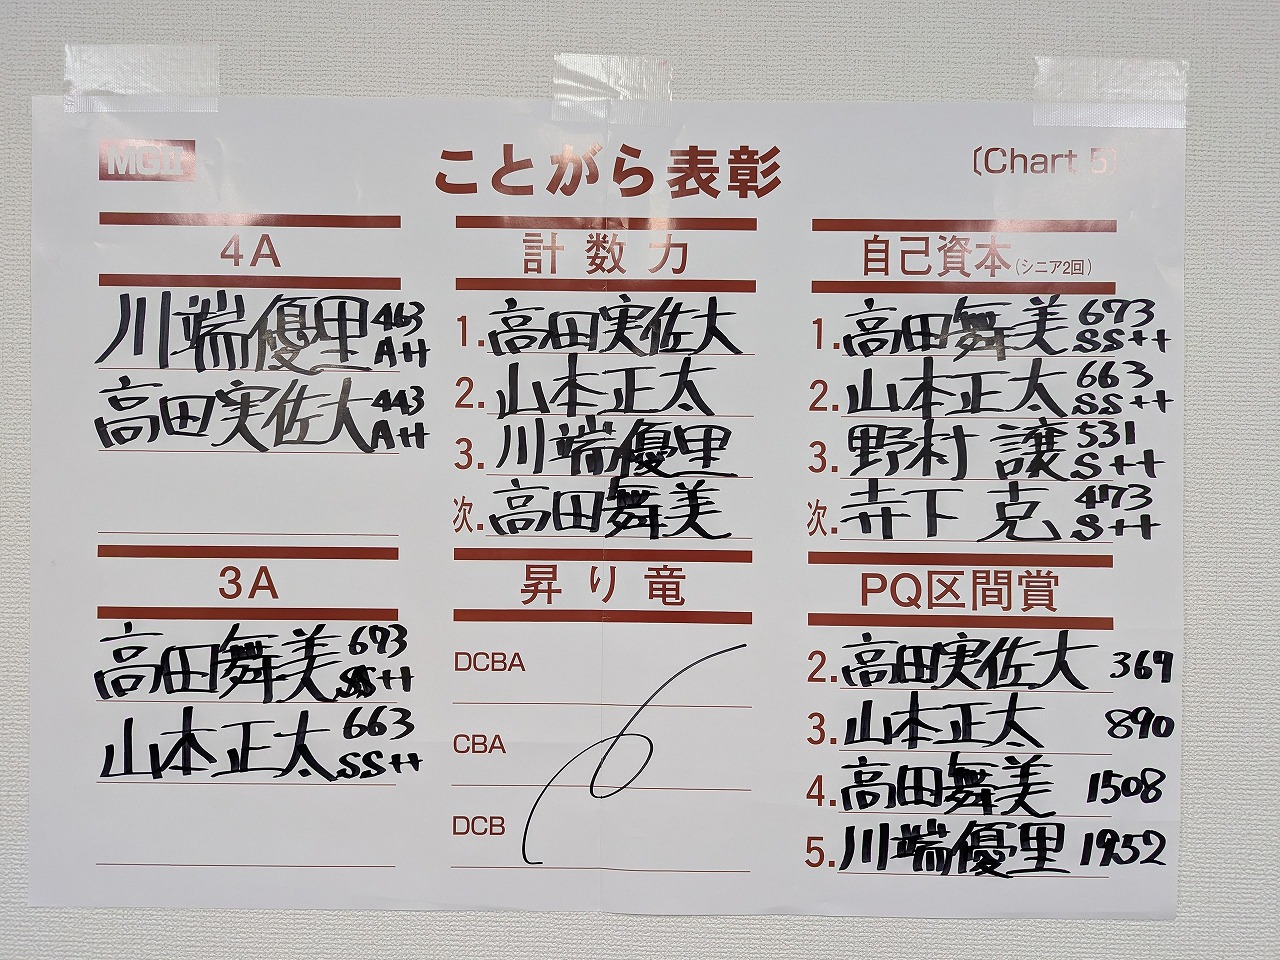 MGII
ことがら表彰
〔Chart 5〕
4A
川端優里 463 A++
高田実佐大 443 A++
3A
高田舞美 673 SS++
山本正太 663 SS++
計数力
1. 高田実佐大
2. 山本正太
3. 川端優里
次. 高田舞美
昇り竜
DCBA
CBA
DCB
自己資本(シニア2回)
1. 高田舞美 673 SS++
2. 山本正太 663 SS++
3. 野村 譲 531 S++
次. 寺下 克 473 S++
PQ区間賞
2. 高田実佐大 369
3. 山本正太 890
4. 高田舞美 1508
5. 川端優里 1952